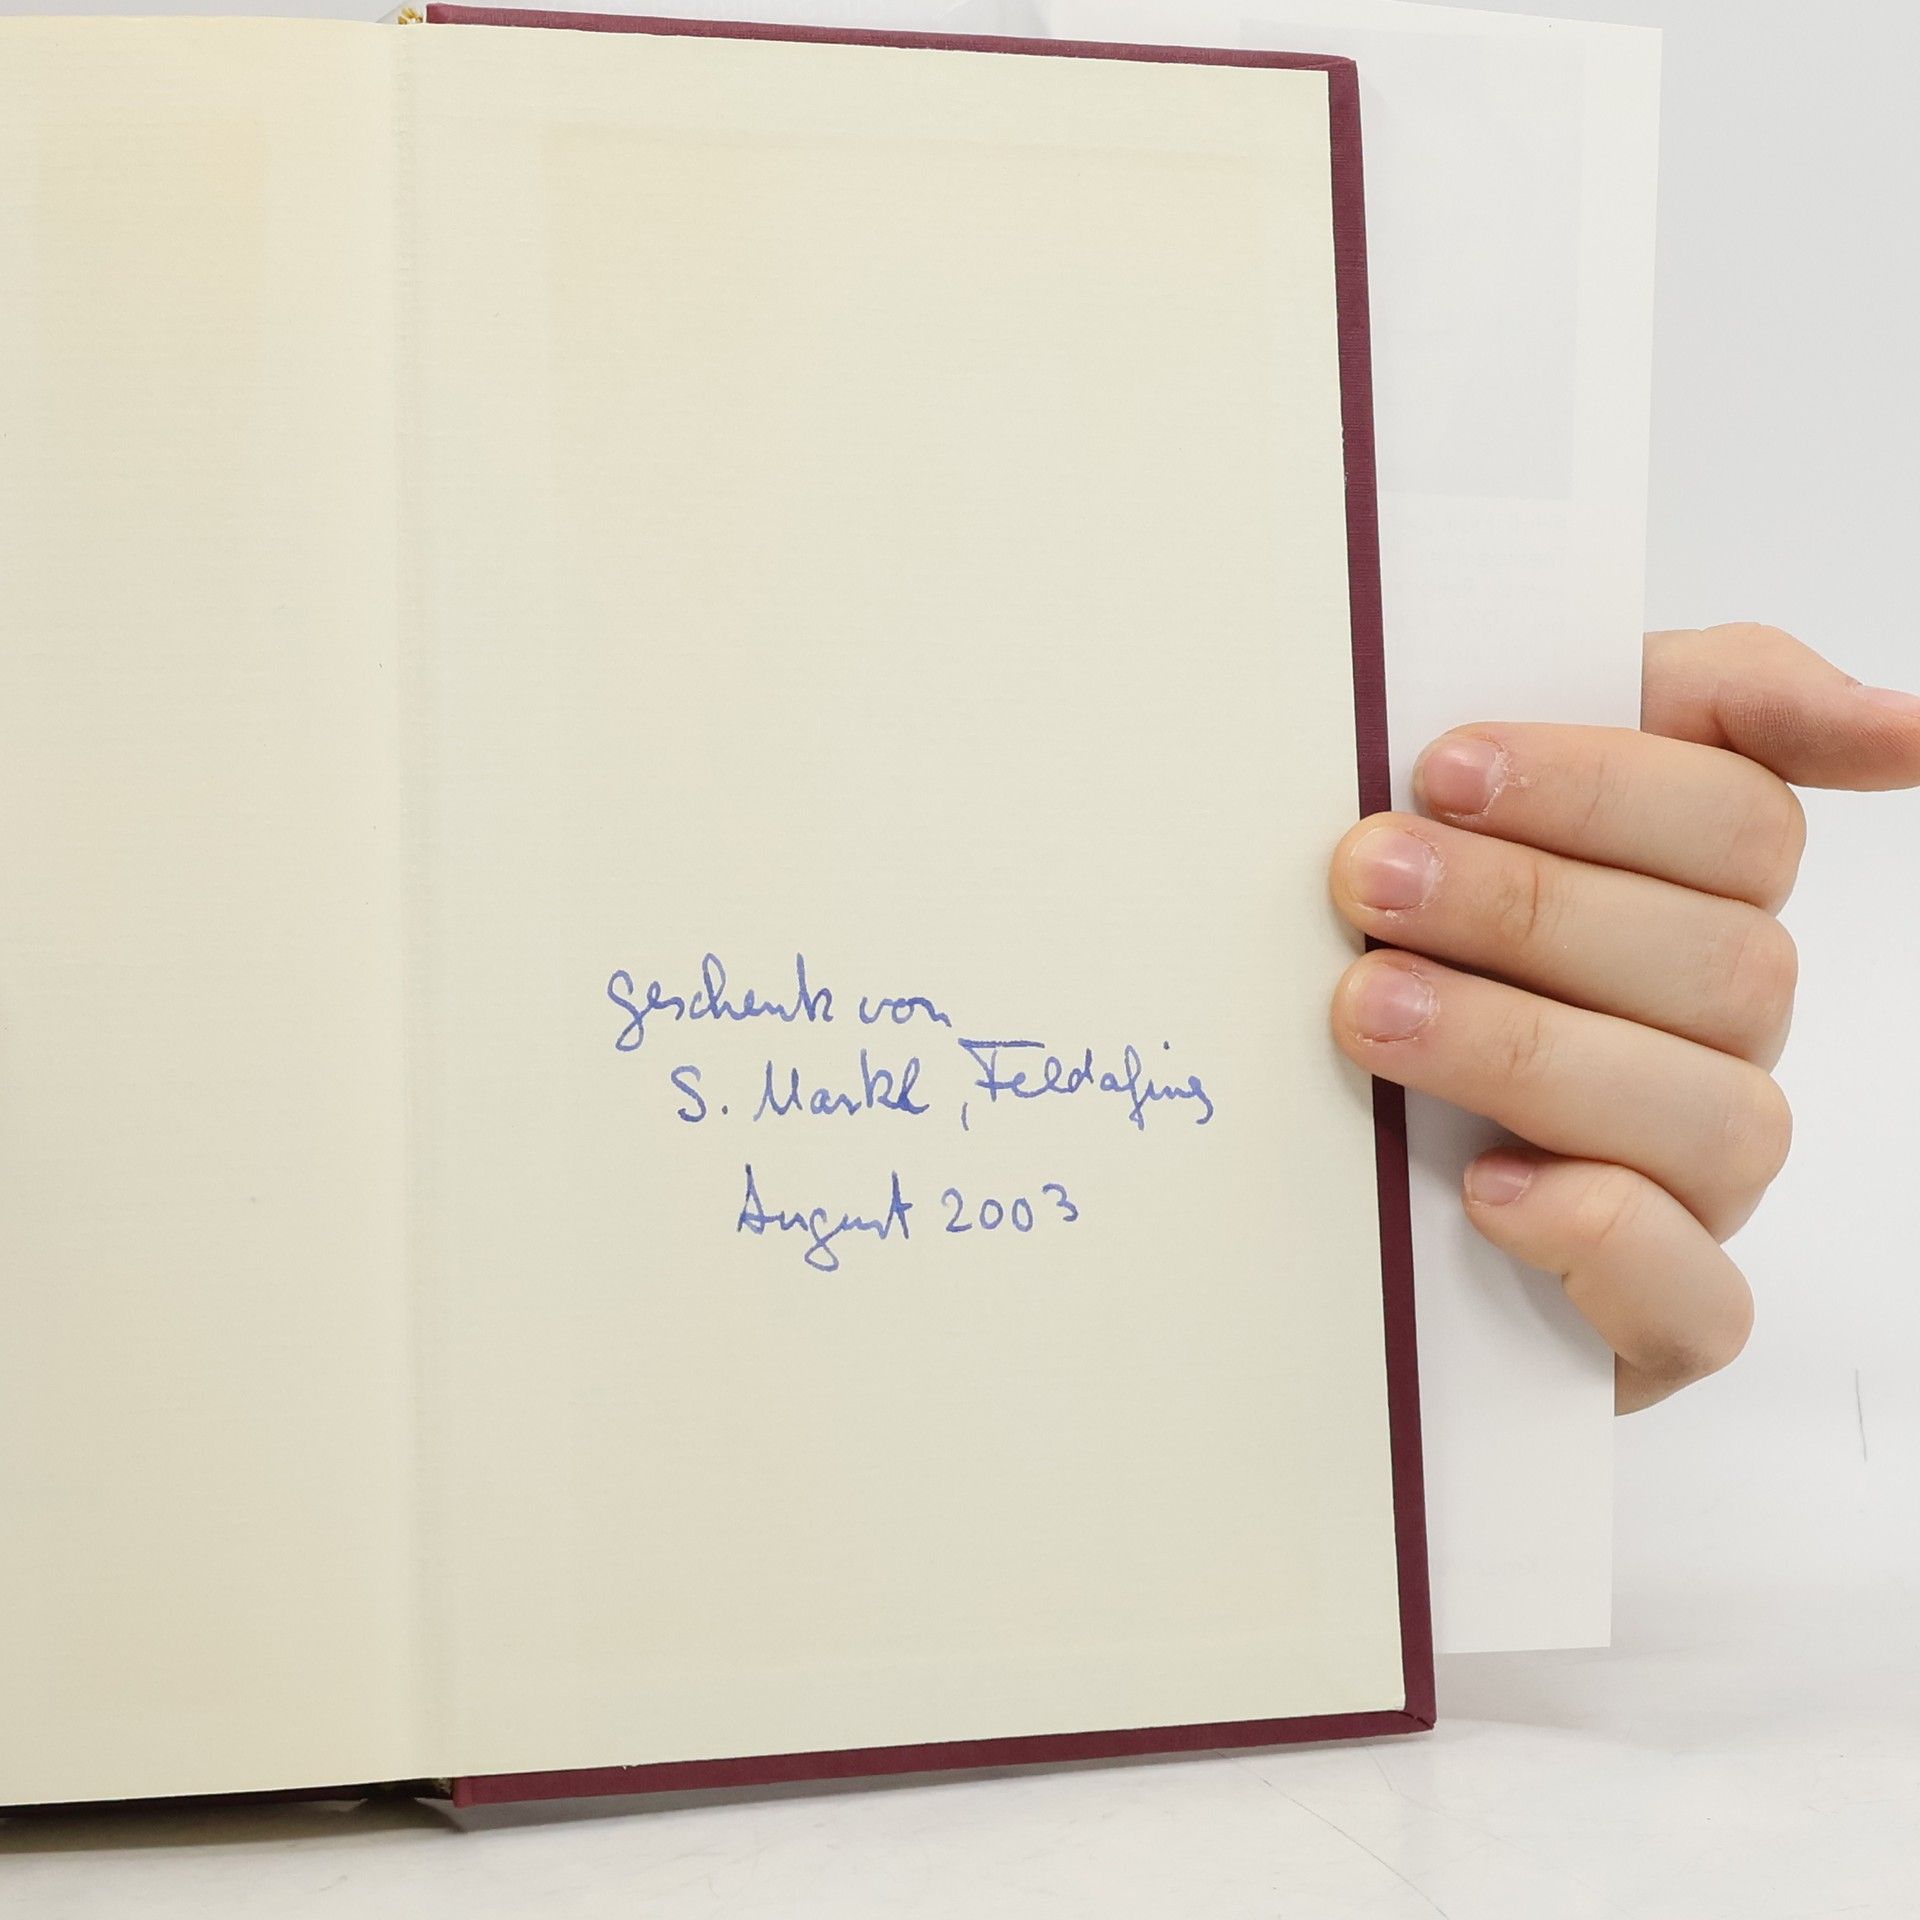 Geschenk von
S. Markl, Feldafing
August 2003